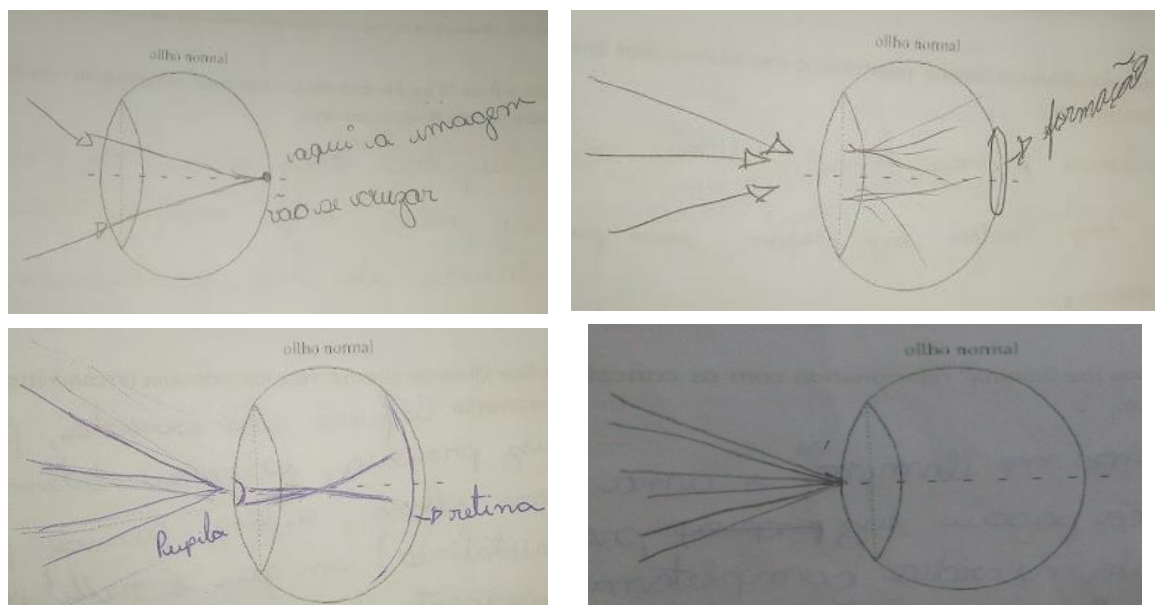 ollho normal
aqui a imagem
vão se cruzar
ollho normal
formação
ollho normal
Pupila
retina
ollho normal